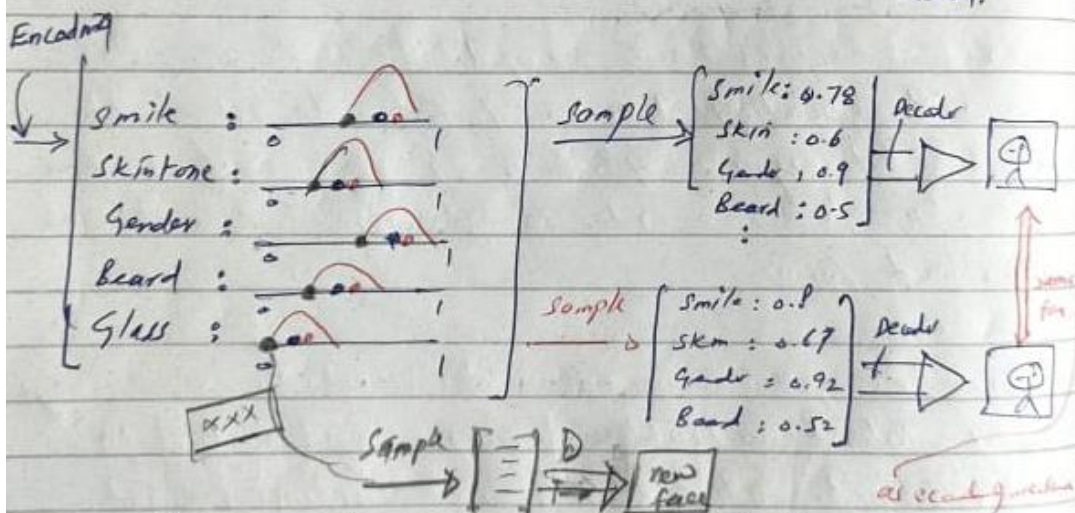 Encoding
Smile :
0 1
Skintone :
0 1
Gender :
0 1
Beard :
0 1
Glass :
0 1
sample
Smile: 0.78
Skin : 0.6
Gender , 0.9
Beard : 0.5
:
Decoder
Sample
Smile : 0.8
Skin : 0.67
Gender : 0.92
Beard : 0.52
Decoder
same
xxx
Sample
D
new
face